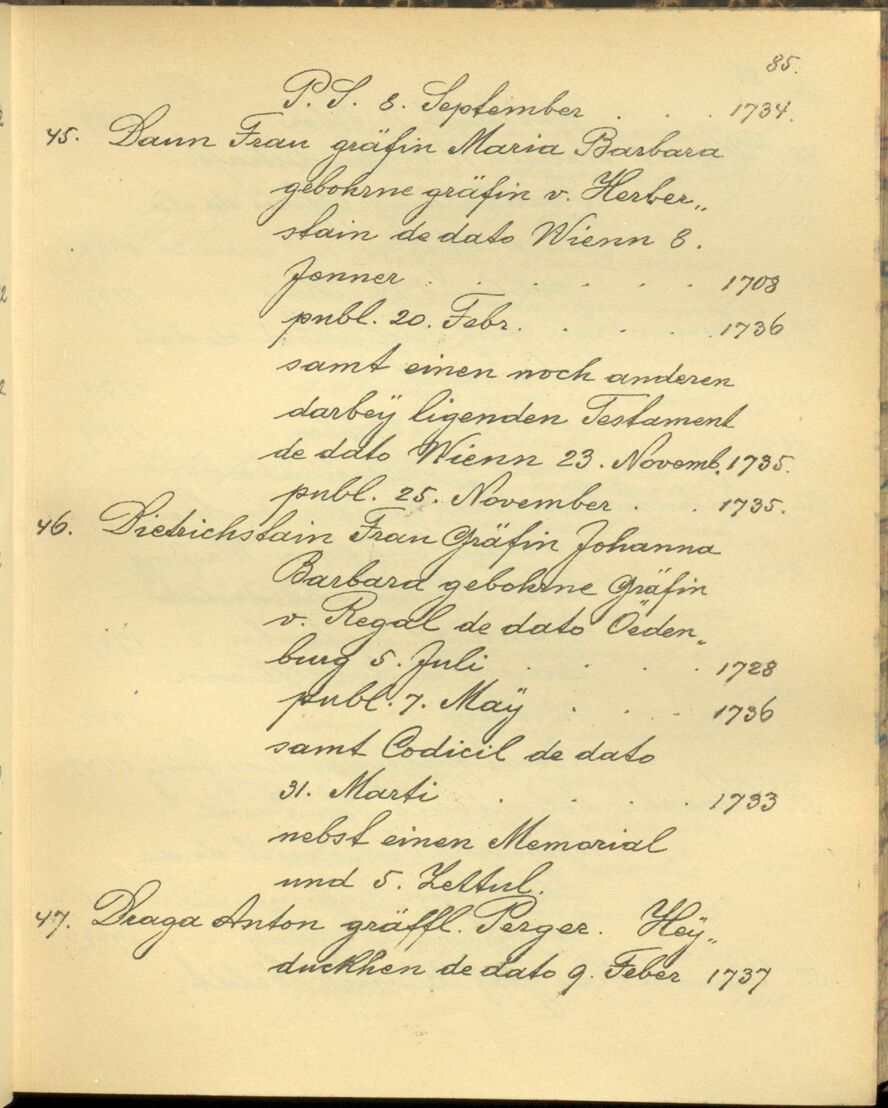 85.
P. S. 8. September . . . 1734.
45. Daun Frau gräfin Maria Barbara
gebohrne gräfin v. Herber„
stain de dato Wienn 8.
Jenner . . . . . . 1708
publ. 20. Febr. . . . . 1736
samt einen noch anderen
darbeÿ ligenden Testament
de dato Wienn 23. Novemb. 1735.
publ. 25. November . . 1735.
46. Dietrichstain Frau Gräfin Johanna
Barbara gebohrne Gräfin
v. Regal de dato Öeden„
burg 5. Juli . . . . 1728
publ. 7. Maÿ . . . 1736
samt Codicil de dato
31. Marti . . . . . 1733
nebst einen Memorial
und 5. Zettul.
47. Draga Anton gräffl. Perger. Heÿ„
duckhen de dato 9. Feber 1737